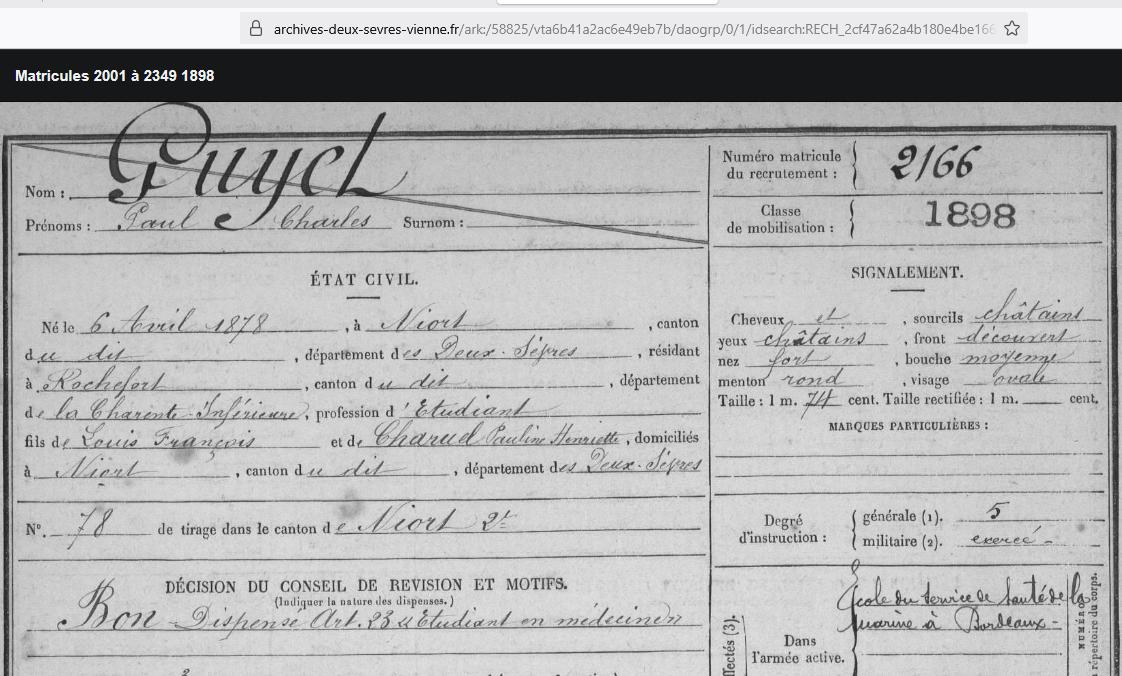 archives-deux-sevres-vienne.fr/ark:/58825/vta6b41a2ac6e49eb7b/daogrp/0/1/idsearch:RECH_2cf47a62a4b180e4be166
Matricules 2001 à 2349 1898
Nom :
Prénoms : Paul Charles Surnom :
Numéro matricule du recrutement : 2166
Classe de mobilisation : 1898
ÉTAT CIVIL.
Né le 6 Avril 1878, à Niort, canton
du dit, département des Deux-Sèvres, résidant
à Rochefort, canton du dit, département
de la Charente-Inférieure, profession d'Etudiant
fils de Louis François et de Charuel Pauline Henriette, domiciliés
à Niort, canton du dit, département des Deux-Sèvres
N°. 78 de tirage dans le canton de Niort 2e
DÉCISION DU CONSEIL DE REVISION ET MOTIFS.
(Indiquer la nature des dispenses.)
Bon Dispensé Art. 23 "Etudiant en médecine"
SIGNALEMENT.
Cheveux et, sourcils châtains
yeux châtains, front découvert
nez fort, bouche moyenne
menton rond, visage ovale
Taille : 1 m. 74 cent. Taille rectifiée : 1 m. cent.
MARQUES PARTICULIÈRES :
Degré d'instruction :
générale (1). 5
militaire (2). exercé
Ecole du Service de Santé de la
marine à Bordeaux-
Dans
l'armée active.
NUMÉRO
répertoire du corps.